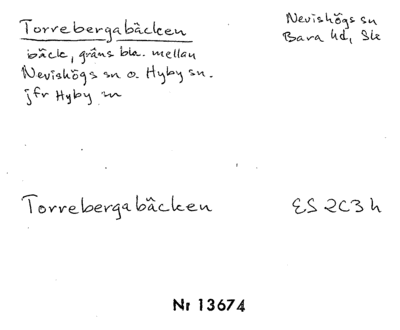 Torrebergabäcken
Nevishögs sn
Bara hd, Sk
bäck, gräns bl.a. mellan
Nevishögs sn o. Hyby sn.
jfr Hyby sn
Torrebergabäcken
ES 2C3h
Nr 13674